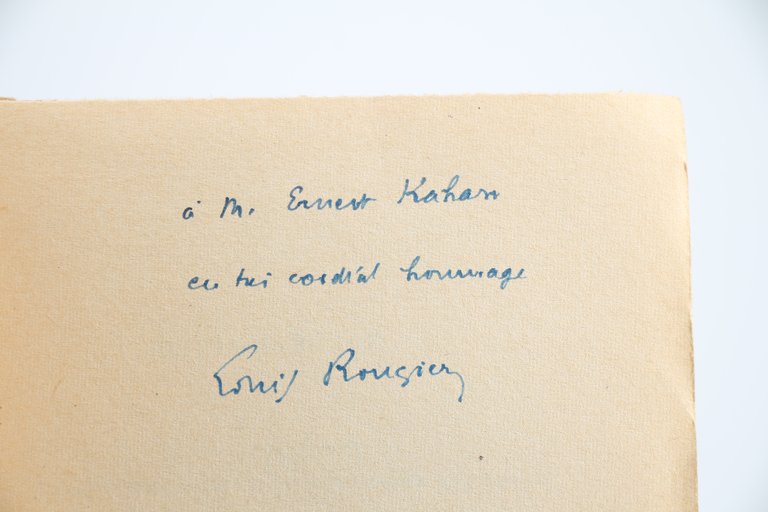 à M. Ernest Kahan
en très cordial hommage
Louis Rougier